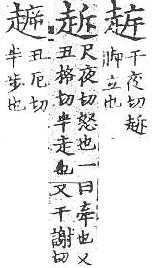 千夜切
立也
尺夜切怒也一曰牽也又
丑格切半走也又千謝切
丑厄切
半步也